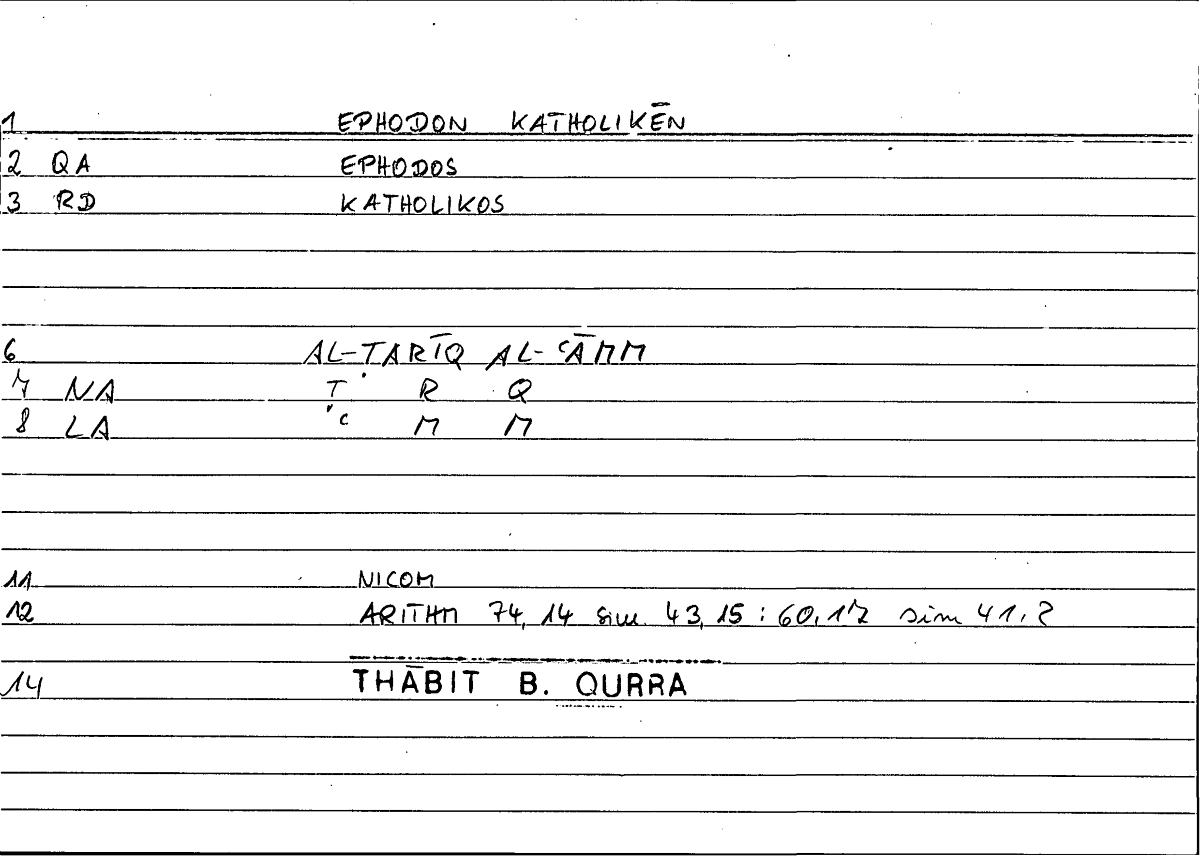 1 EPHODON KATHOLIKĒN
2 QA EPHODOS
3 RD KATHOLIKOS
6 AL-ṬARĪQ AL-ʿĀMM
7 NA Ṭ R Q
8 LA ʿ M M
11 NICOM
12 ARITHM 74,14 sim. 43,15 : 60,17 sim 41,2
14 THĀBIT B. QURRA